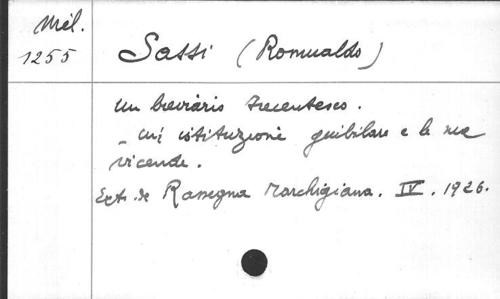 Mél.
1255
Sassi (Romualdo)
Un breviario trecentesco.
_ un' istituzione giubilare e le sue
vicende.
Ext. de Rassegna Marchigiana. IV. 1926.